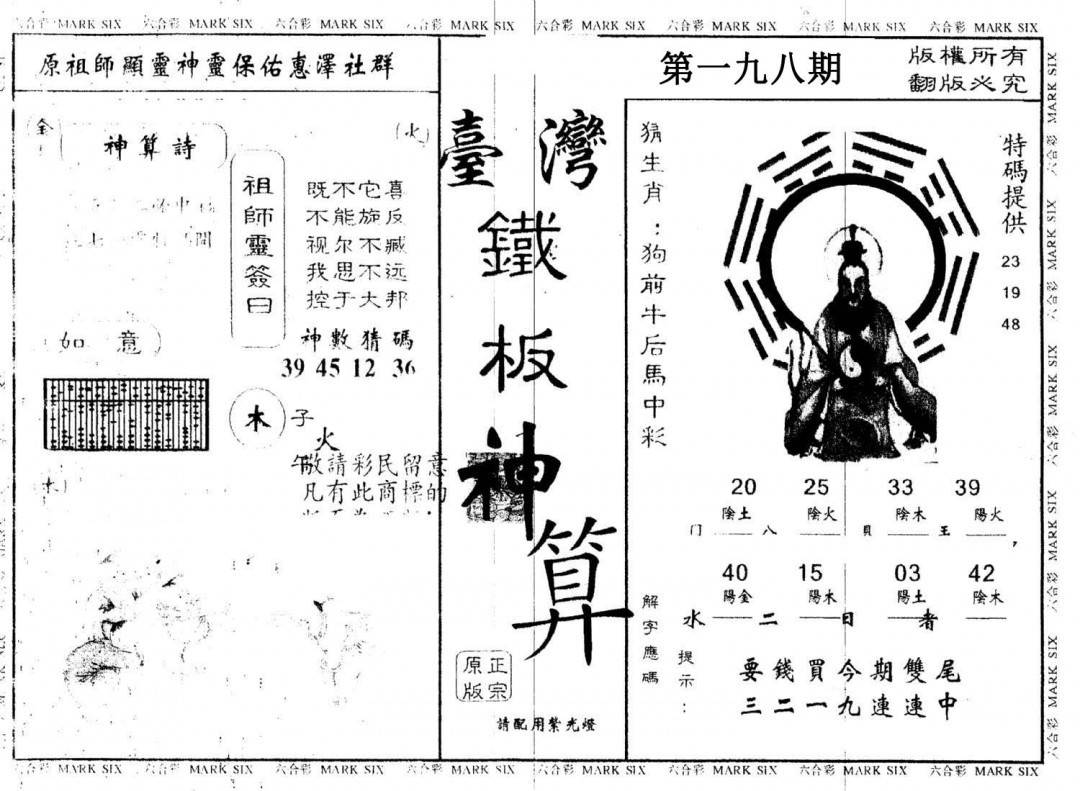 六合彩 MARK SIX 六合彩 MARK SIX 六合彩 MARK SIX 六合彩 MARK SIX 六合彩 MARK SIX 六合彩 MARK SIX 六合彩 MARK SIX 六合彩 MARK SIX
原祖師顯靈神靈保佑惠澤社群
第一九八期
版權所有
翻版必究
金
神算詩
火
祖師靈簽曰
既不它喜
不能旋反
视尔不臧
我思不远
控于大邦
神數猜碼
39 45 12 36
如意
木
子
火
午
敬請彩民留意
凡有此商標的
木
臺灣
鐵
板
神
算
正宗
原版
請配用紫光燈
猜生肖：狗前牛后馬中彩
特碼提供
23
19
48
20 25 33 39
陰土 陰火 陰木 陽火
门 八 貝 王 ，
40 15 03 42
陽金 陽木 陽土 陰木
水 二 日 者
解字應碼
提示：
要錢買今期雙尾
三二一九連連中
六合彩 MARK SIX 六合彩 MARK SIX 六合彩 MARK SIX 六合彩 MARK SIX 六合彩 MARK SIX
六合彩 MARK SIX 六合彩 MARK SIX 六合彩 MARK SIX 六合彩 MARK SIX 六合彩 MARK SIX 六合彩 MARK SIX 六合彩 MARK SIX 六合彩 MARK SIX